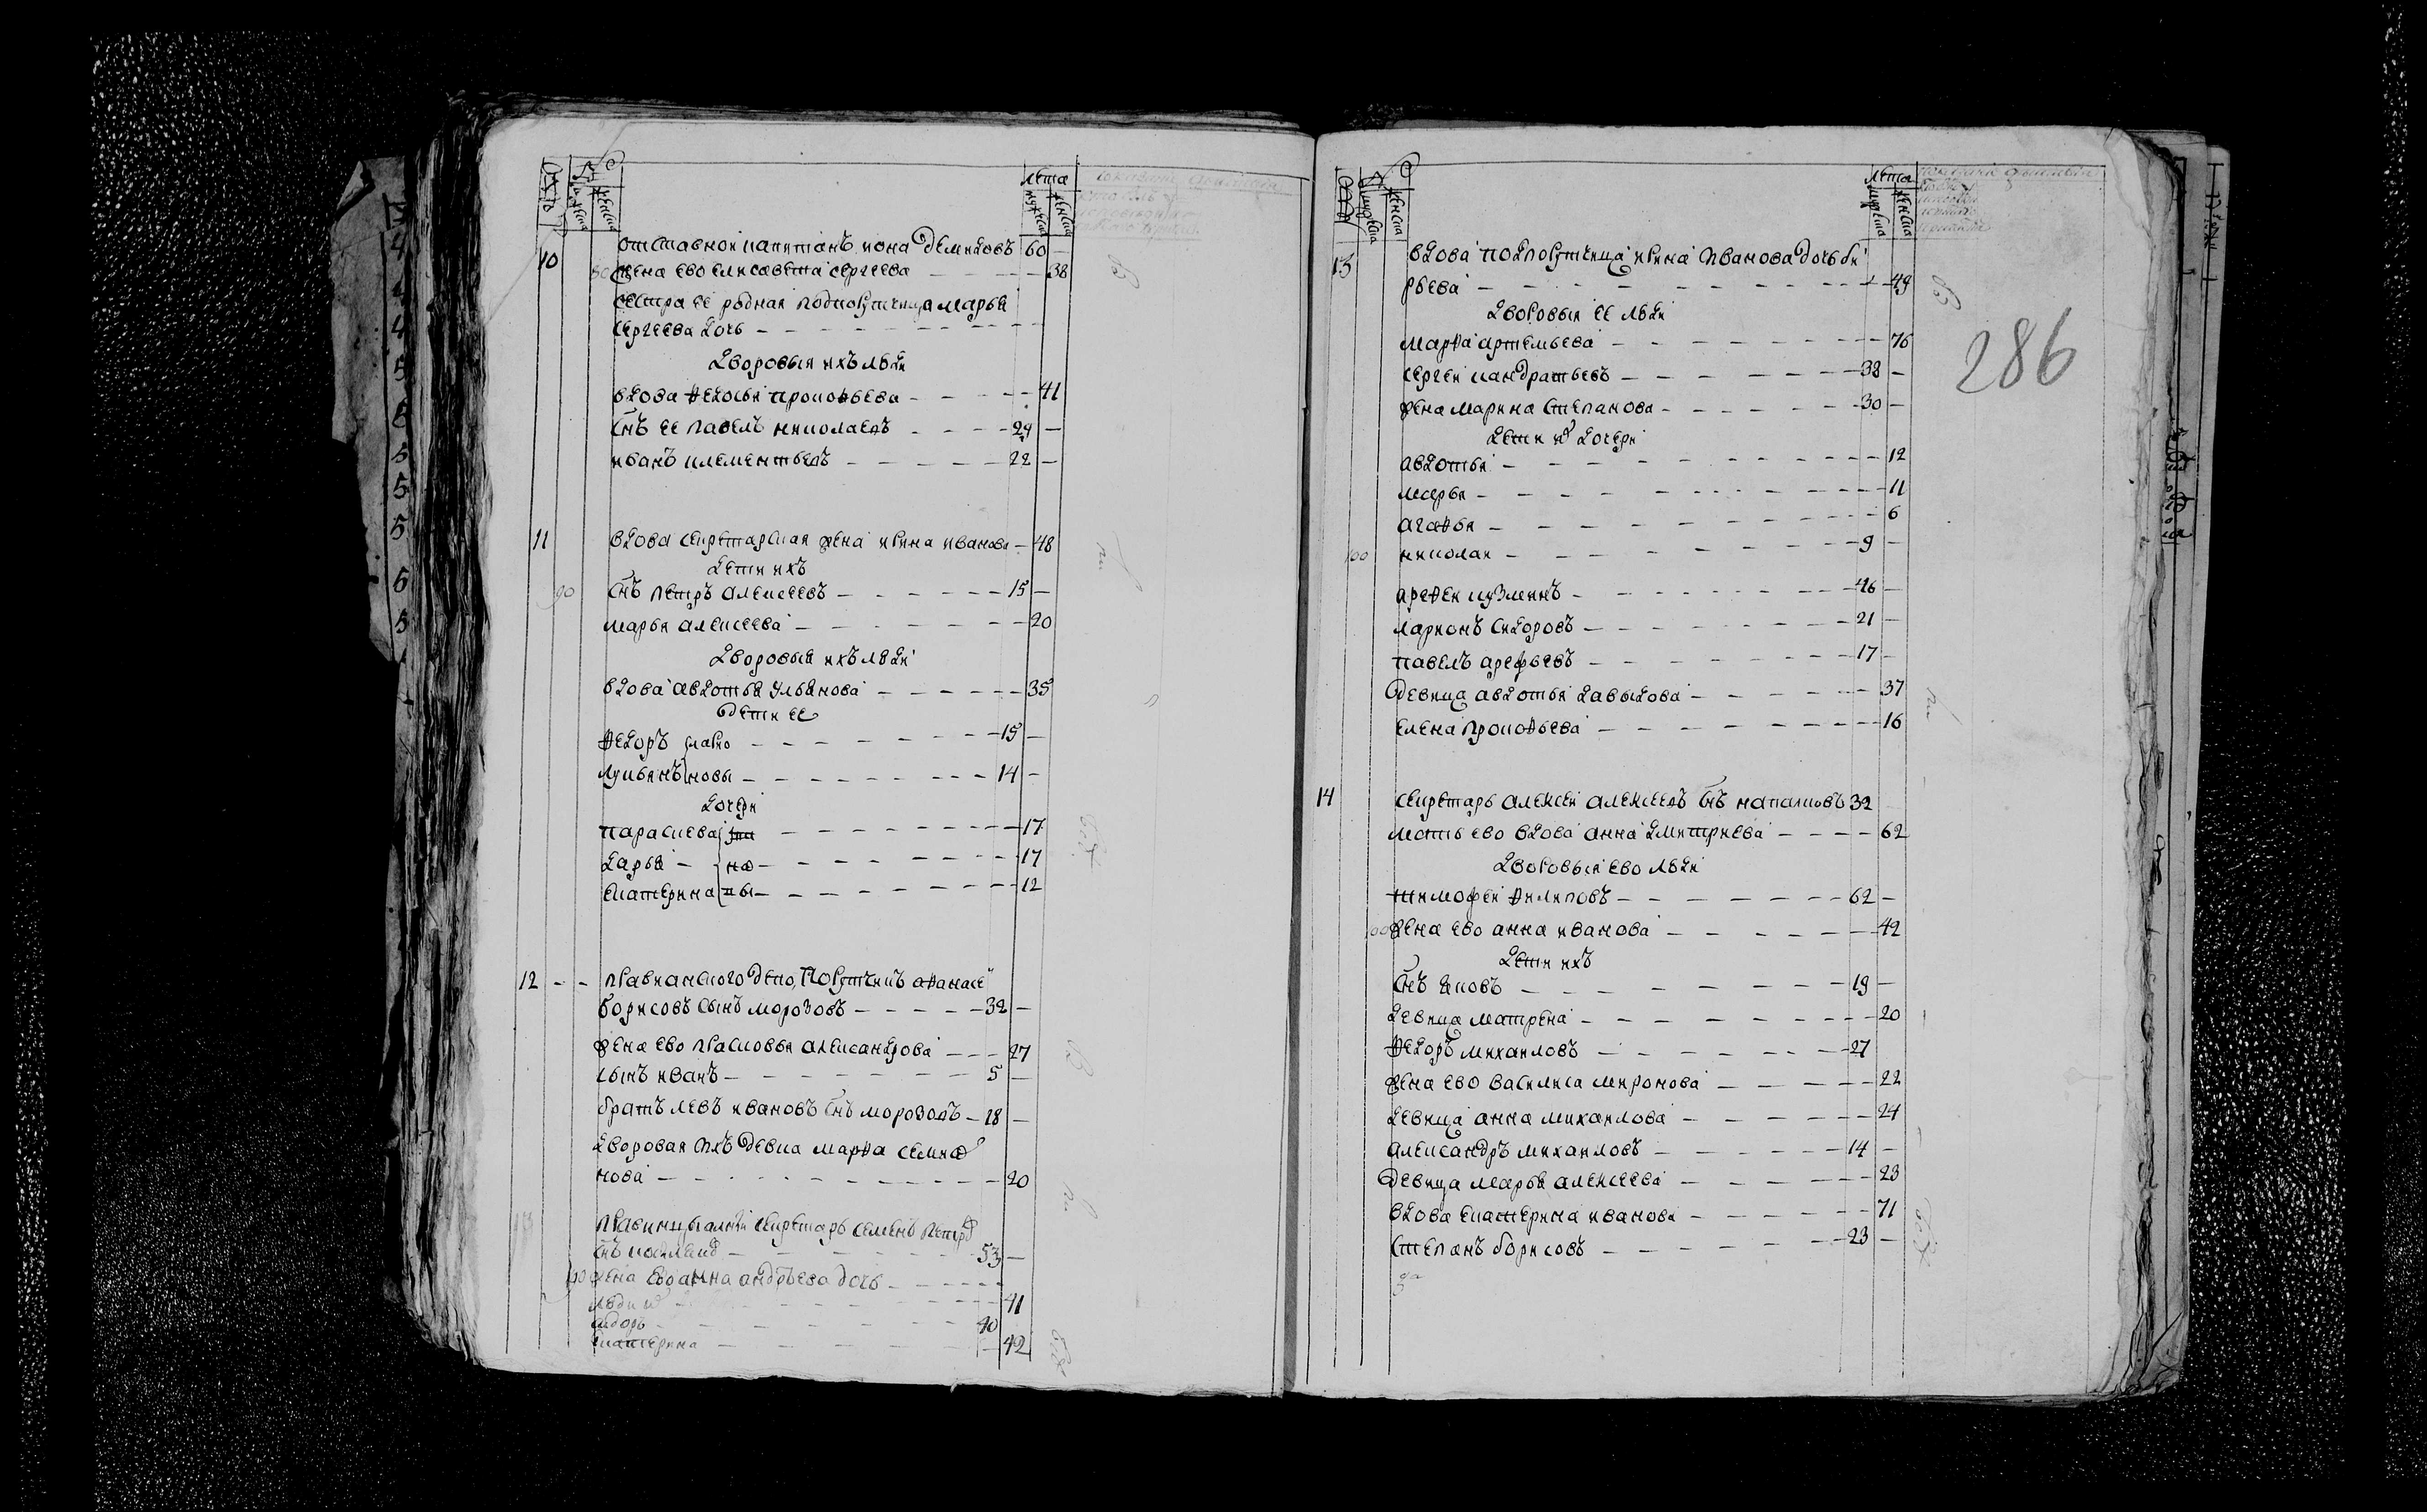 лѣта
мужеска
женска
10 отставной капитанъ иона демидовъ 60 —
жена ево елисавета сергеева — 38
сестра ее родная подпорутчица марья
сергеева дочь —
дворовыя ихъ люди
вдова федосья прокофьева — 41
снъ ее павелъ николаевъ — 24 —
иванъ клементьевъ — 22 —
11 вдова секретарская жена ирина иванова — 48
дети ихъ
90 снъ петръ алексеевъ — 15 —
марья алексеева — 20
дворовыя ихъ люди
вдова авдотья ульянова — 35
дети ее
федоръ — 15 —
лукьянъ новы — 14 —
дочери
парасковья — 17
дарья — 17
екатерина — 12
12 — — правианского депо порутчикъ афанасеи
борисовъ сынъ морозовъ — 32 —
жена ево прасковья александрова — 27
сынъ иванъ — 5 —
братъ левъ ивановъ снъ морозовъ — 18 —
дворовая ихъ девка марфа селива
нова — 20
13 правинцыалной секретарь семенъ петровъ
снъ — 53 —
жена ево анна андрѣева дочь —
люди их — 41
сидоръ — 40
екатерина — 42
лѣта
мужеска
женска
286
13 вдова подпорутчица ирина иванова дочь
рьева — 49
дворовыя ее люди
марфа артемьева — 76
сергеи кандратьевъ — 38 —
жена марина степанова — 30 —
дети их дочери
авдотья — 12
марья — 11
агафья — 6
100 николаи — 9 —
арефеи кузминъ — 46 —
ларионъ сидоровъ — 21 —
павелъ арефьевъ — 17 —
девица авдотья давыдова — 37
елена прокофьева — 16
14 секретарь алексеи алексеевъ снъ 32
мать ево вдова анна дмитриева — 62
дворовыя ево люди
тимофеи филиповъ — 62 —
жена ево анна иванова — 42
дети ихъ
снъ яковъ — 19 —
девица матрена — 20
федоръ михаиловъ — 27
жена ево василиса миронова — 22
девица анна михаилова — 24
александръ михаиловъ — 14 —
девица марья алексеева — 23
вдова екатерина иванова — 71
степанъ борисовъ — 23 —